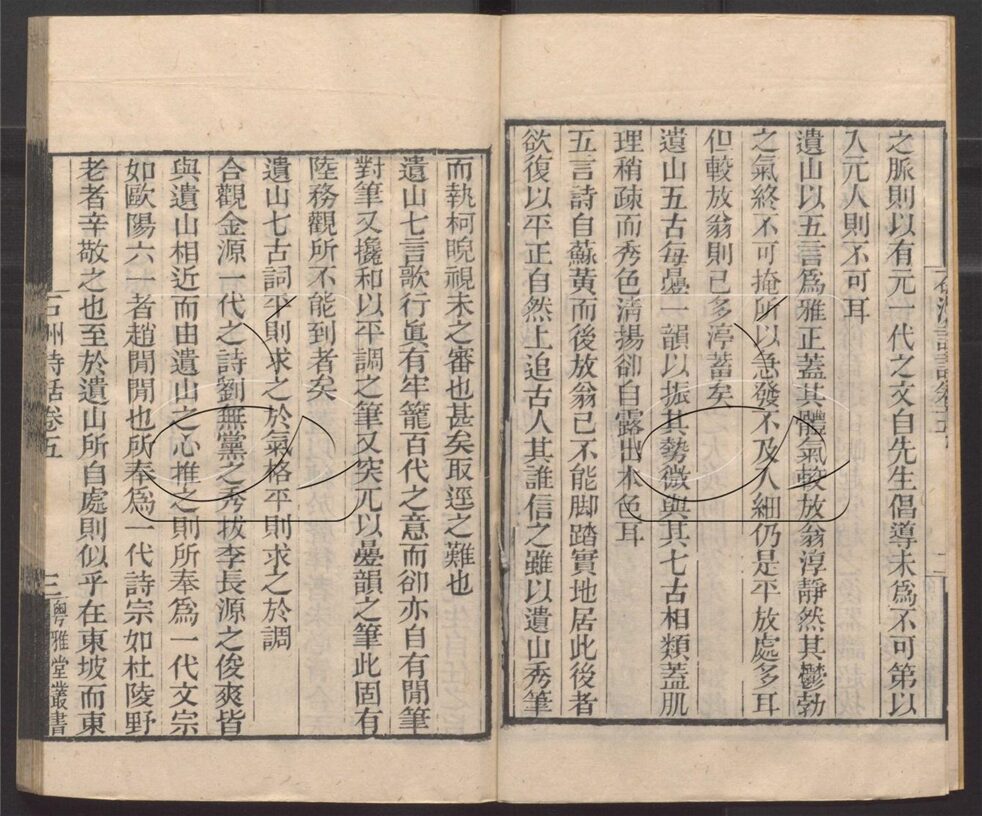 之脈則以有元一代之文自先生倡導未為不可第以
入元人則不可耳
遺山以五言爲雅正蓋其體氣較放翁淳靜然其鬱勃
之氣終不可掩所以急發不及入細仍是平放處多耳
但較放翁則已多渟蓄矣
遺山五古每疊一韻以振其勢微與其七古相類蓋肌
理稍疎而秀色清揚卻自露出本色耳
五言詩自蘇黃而後放翁已不能脚踏實地居此後者
欲復以平正自然上追古人其誰信之雖以遺山秀筆
而執柯睨視未之審也甚矣取逕之難也
遺山七言歌行眞有牢籠百代之意而卻亦自有閒筆
對筆又攙和以平調之筆又突兀以疊韻之筆此固有
陸務觀所不能到者矣
遺山七古詞平則求之於氣格平則求之於調
合觀金源一代之詩劉無黨之秀拔李長源之俊爽皆
與遺山相近而由遺山之心推之則所奉爲一代文宗
如歐陽六一者趙閒閒也所奉爲一代詩宗如杜陵野
老者辛敬之也至於遺山所自處則似乎在東坡而東
石州詩話卷五
三
粤雅堂叢書